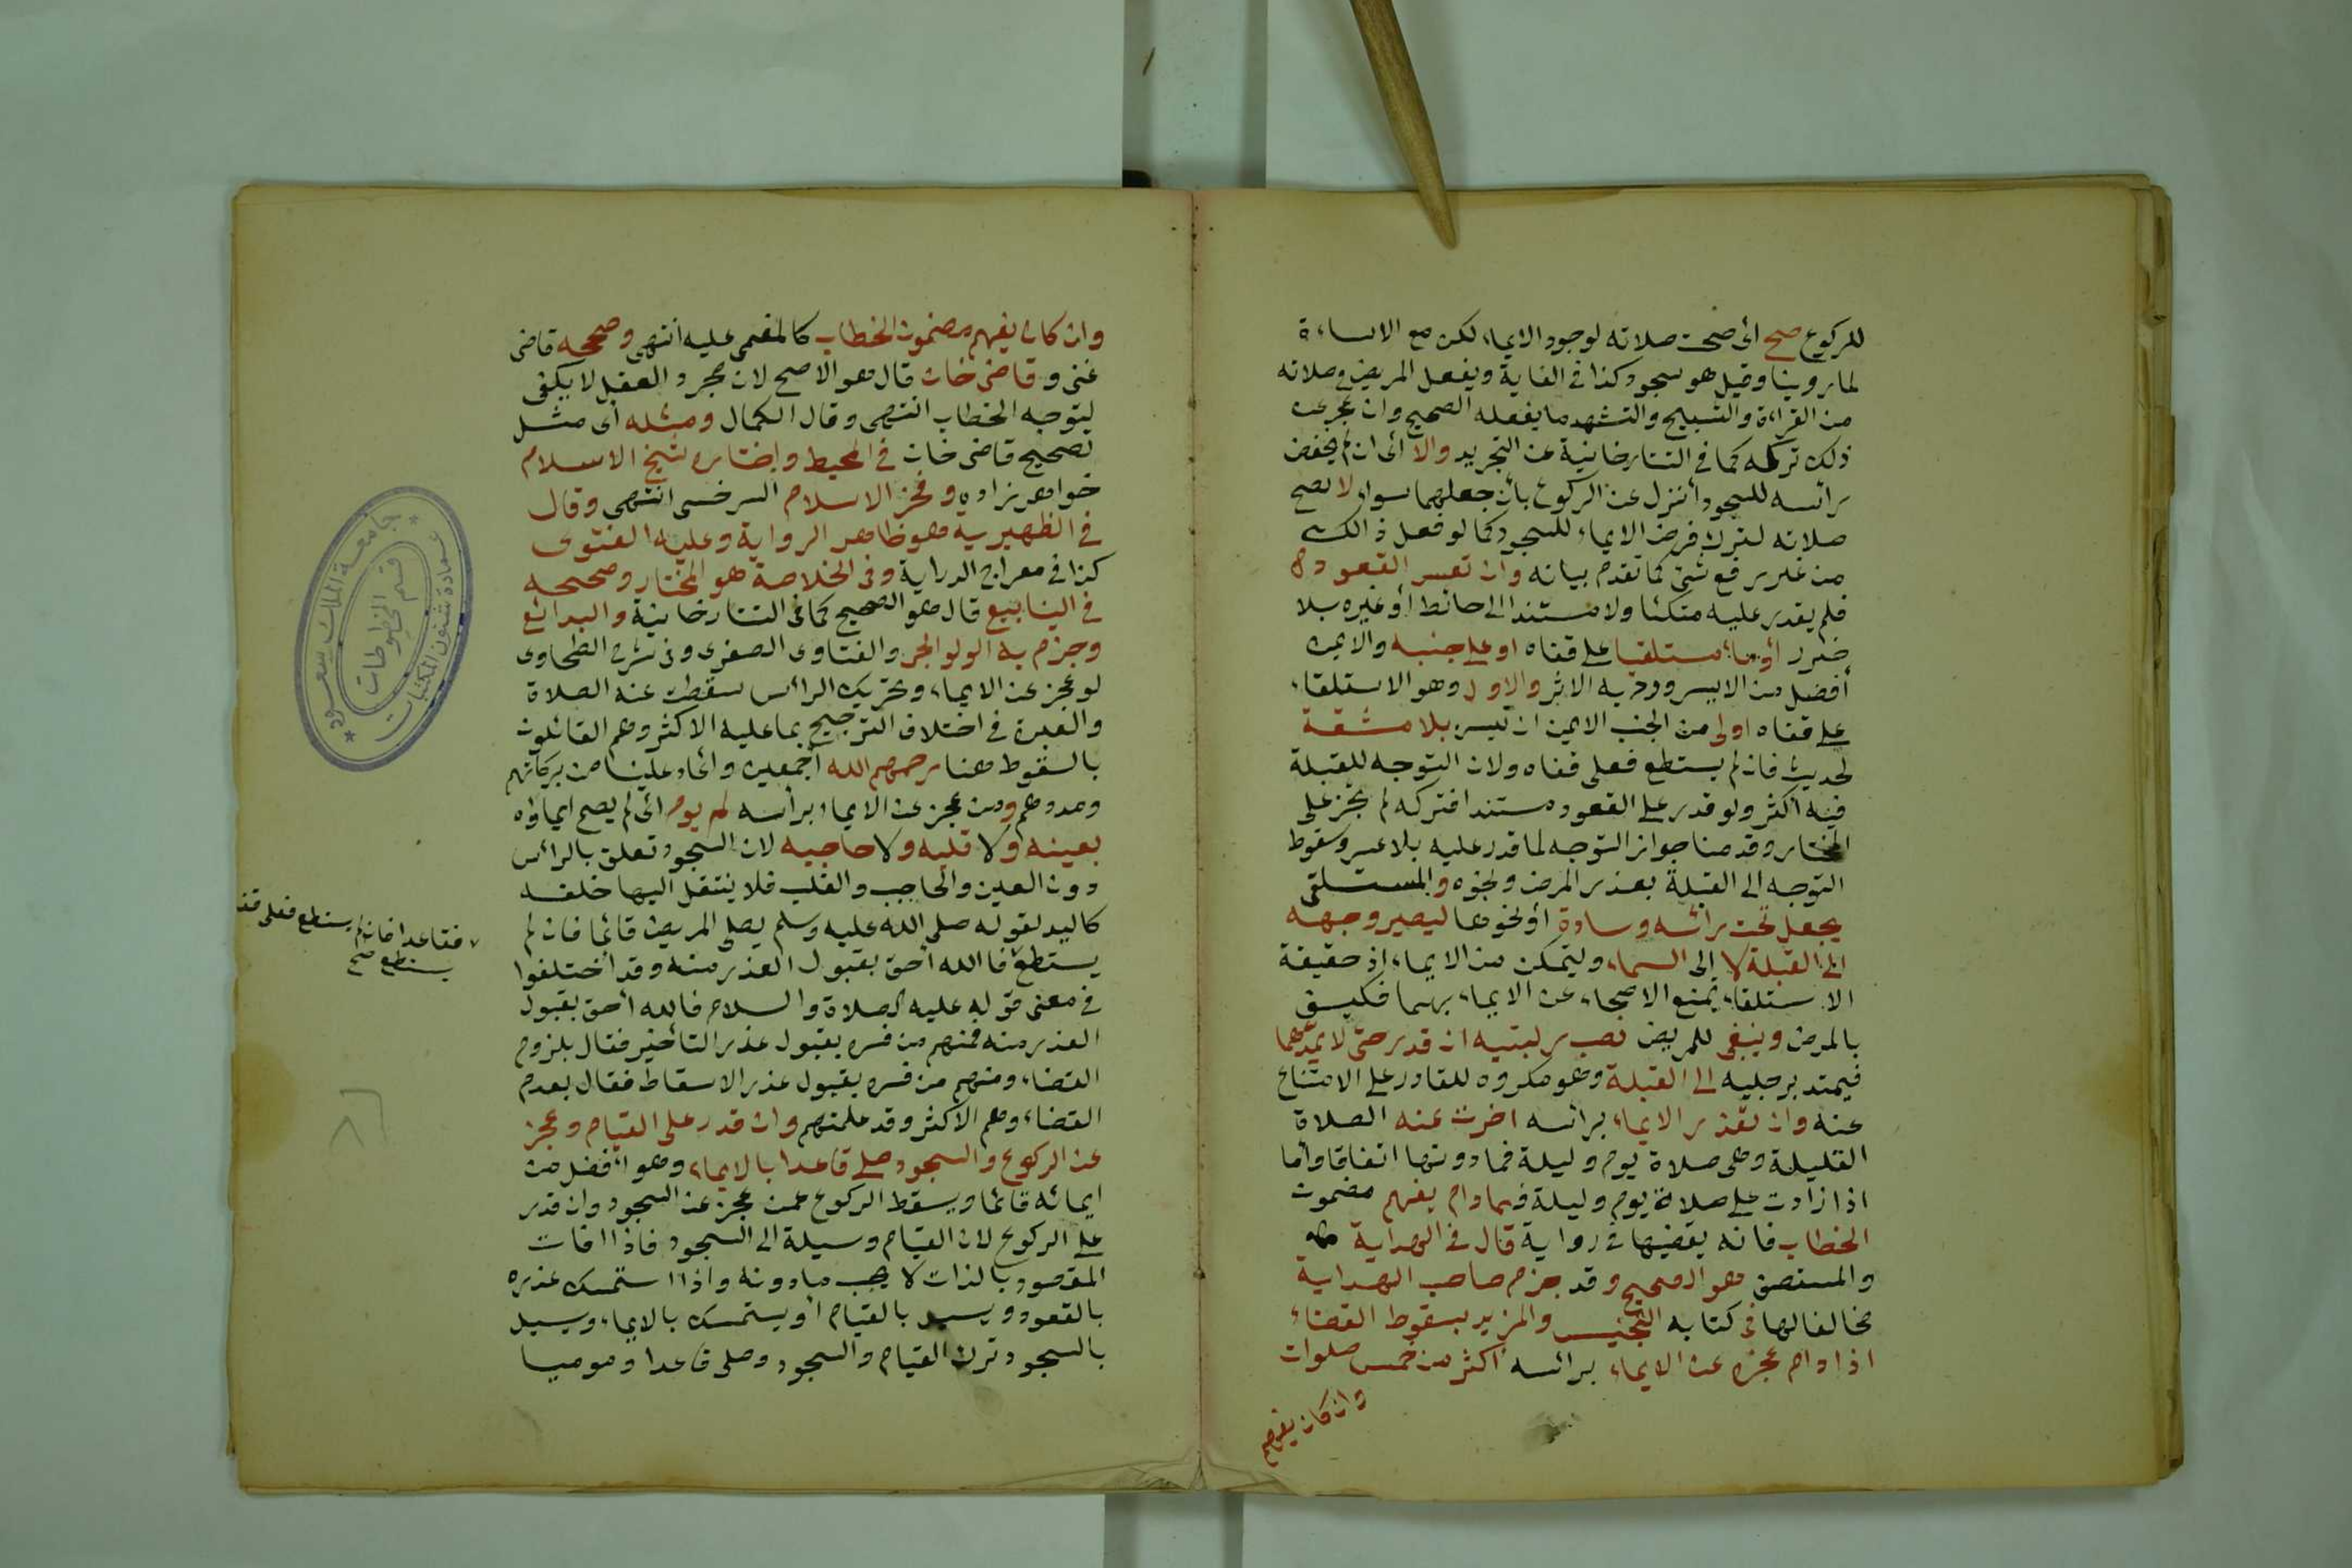 للركوع صح أى صحت صلاته لوجود الايماء لكن مع الاساءة
لما روينا وقيل هو سجود كذا فى الغاية ويفعل المريض فى صلاته
من القراءة والتسبيح والتشهد ما يفعله الصحيح وان عجز عن
ذلك تركه كما فى التتارخانية عن التجريد والا أى ان لم يخفض
رأسه للسجود أنزل عن الركوع بأن جعلهما سواء لا تصح
صلاته لترك فرض الايماء للسجود كما لو فعل ذالك
من غير رفع شئ كما تقدم بيانه وان تعسر القعود
فلم يقدر عليه متكئا ولا مستندا الى حائط أو غيره بلا
ضرر أومأ مستلقيا على قفاه او على جنبه والايمن
أفضل من الايسر وورد به الاثر والاول وهو الاستلقاء
على قفاه اولى من الجنب الايمن ان تيسر بلا مشقة
لحديث فان لم يستطع فعلى قفاه ولان التوجه للقبلة
فيه أكثر ولو قدر على القعود مستندا فتركه لم يجز على
المختار وقدمنا جواز التوجه لما قدر عليه بلا عسر وسقوط
التوجه الى القبلة بعذر المرض ونحوه والمستلقى
يجعل تحت رأسه وسادة أو نحوها ليصير وجهه
الى القبلة لا الى السماء وليتمكن من الايماء إذ حقيقة
الاستلقاء يمنع الاصحاء عن الايماء بهما فكيف
بالمرض وينبغى للمريض نصب ركبتيه ان قدر حتى لا يمدهما
فيمتد برجليه الى القبلة وهو مكروه للقادر على الامتناع
عنه وان تعذر الايماء برأسه اخرت عنه الصلاة
القليلة وهى صلاة يوم وليلة فما دونها اتفاقا وأما
اذا زادت على صلاة يوم وليلة فما دام يفهم مضمون
الخطاب فانه يقضيها فى رواية قال فى الهداية
والمستصفى هو الصحيح وقد جزم صاحب الهداية
مخالفا لها فى كتابه التجنيس والمزيد بسقوط القضاء
اذا دام عجزه عن الايماء برأسه أكثر من خمس صلوات
وان كان يفهم
وان كان يفهم مضمون الخطاب كالمغمى عليه انتهى وصححه قاضى
غنى و قاضى خان قال هو الاصح لان مجرد العقل لا يكفى
لتوجه الخطاب انتهى وقال الكمال ومثله أى مثل
تصحيح قاضى خان فى المحيط واختاره شيخ الاسلام
خواهر زاده وفخر الاسلام السرخسى انتهى وقال
فى الظهيرية هو ظاهر الرواية وعليه الفتوى
كذا فى معراج الدراية وفى الخلاصة هو المختار وصححه
فى الينابيع قال هو الصحيح كما فى التتارخانية والبدائع
وجزم به الولوالجى والفتاوى الصغرى وفى شرح الطحاوى
لو عجز عن الايماء وتحريك الرأس سقطت عنه الصلاة
والعبرة فى اختلاف الترجيح بما عليه الاكثر وهم القائلون
بالسقوط هنا رحمهم الله أجمعين واعاد علينا من بركاتهم
ومددهم ومن عجز عن الايماء برأسه لم يوم أى لم يصح ايماؤه
بعينه ولا قلبه ولا حاجبه لان السجود تعلق بالرأس
دون العين والحاجب والقلب فلا ينتقل اليها خلفه
كاليد لقوله صلى الله عليه وسلم يصلى المريض قائما فان لم
يستطع فالله أحق بقبول العذر منه وقد اختلفوا
فى معنى قوله عليه الصلاة والسلام فالله أحق بقبول
العذر منه فمنهم من فسره بقبول عذر التأخير فقال بلزوم
القضاء ومنهم من فسره بقبول عذر الاسقاط فقال بعدم
القضاء وهم الاكثر وقد علمتهم وان قدر على القيام وعجز
عن الركوع والسجود صلى قاعدا بالايماء وهو أفضل من
ايمائه قائما ويسقط الركوع عمن عجز عن السجود وان قدر
على الركوع لان القيام وسيلة الى السجود فاذا فات
المقصود بالذات لا يجب مادونه واذا استمسك عذره
بالقعود ويسيل بالقيام أو يستمسك بالايماء ويسيل
بالسجود ترك القيام والسجود وصلى قاعدا وموميا
فقاعدا فان لم يستطع فعلى
يستطع صح
جامعة الملك سعود
عمادة شئون المكتبات
قسم المخطوطات